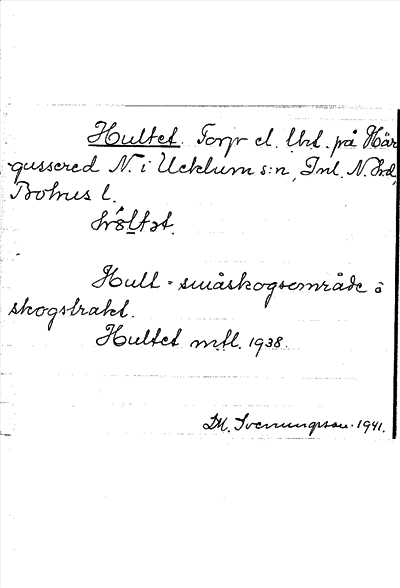 Hultet. Torp el. lht. på Här
gussered N. i Ucklum s:n, Inl. N. hd,
Bohus l.
høltət.
Hult = småskogsområde å
skogstrakt.
Hultet mfl. 1938.
LM. Svenungsson. 1941.